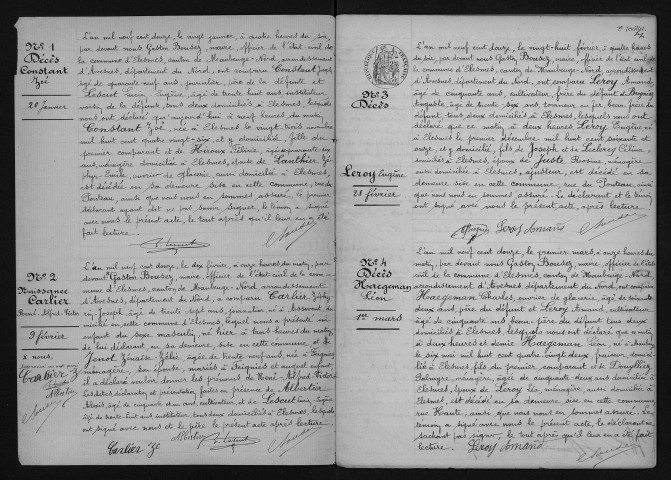 N° 1
Décès
Constant
Zoé
20 Janvier
L'an mil neuf cent douze, le vingt janvier, à quatre heures du soir,
par devant nous Gaston Bousez, maire, officier de l'état civil de
la commune d'Elesmes, canton de Maubeuge-Nord, arrondissement
d'Avesnes, département du Nord, ont comparu Constant Joseph
âgé de quarante neuf ans, journalier, père de la défunte et
Lescut Eugène, âgé de trente huit ans instituteur
de la défunte, tous deux domiciliés à Elesmes, lesquels
nous ont déclaré que aujourd'hui à neuf heures du matin,
Constant Zoé, née à Elesmes le vingt trois novembre
mil huit cent quatre vingt six, et y domiciliée, fille du
premier comparant et de Félicie, âgée quarante six
ans, ménagère domiciliée à Elesmes, épouse de
Emile, ouvrier de glacerie, aussi domicilié à Elesmes,
est décédée en sa demeure sise en cette commune, rue du
Ponteau, ainsi que nous nous en sommes assuré. Le premier
déclarant ayant dit ne savoir signer, le témoin a signé
avec nous le présent acte, le tout après qu'il leur en a été
fait lecture.
N° 2
Naissance
Carlier
René Alfred Victor
9 février
L'an mil neuf cent douze, le dix février, à onze heures du matin, par
devant Gaston Bousez, maire, officier de l'état civil de la commune
d'Elesmes, canton de Maubeuge-Nord arrondissement
d'Avesnes, département du Nord, a comparu Carlier
Joseph, âgé de trente sept ans, journalier, né à Assevent, domicilié
en cette commune d'Elesmes, lequel nous a présenté un
enfant du sexe masculin, né hier à trois heures du matin,
de lui déclarant, en sa demeure, sise en cette commune, et de
Jonot Zénaïse Zélie, âgée de trente neuf ans, née à Feignies
ménagère, son épouse, mariés à Feignies et auquel enfant
il a déclaré vouloir donner les prénoms de René Alfred Victor.
Les dites déclaration et présentation faites en présence de
âgé de cinquante et un ans, cultivateur, et de Lescut Eugène
âgé de trente huit ans, instituteur, tous deux domiciliés à Elesmes, lesquels
ont signé avec nous et le père le présent acte après lecture.
Carlier Ze
2e feuillet.
N° 3
Décès
Leroy Eugène
28 février
L'an mil neuf cent douze, le vingt-huit février, à quatre heures
du soir, par devant nous Gaston Bousez, maire, officier de l'état civil de
la commune d'Elesmes, canton de Maubeuge-Nord, arrondissement
d'Avesnes, département du Nord, ont comparu Leroy Armand,
âgé de cinquante ans, cultivateur, frère du défunt et
Auguste, âgé de trente six ans, tourneur en fer, beau frère du
défunt, tous deux domiciliés à Elesmes, lesquels nous ont
déclaré que ce matin à deux heures Leroy Eugène né à
Elesmes le premier décembre mil huit cent soixante et
onze, et y domicilié, fils de Joseph et de Céline
domiciliés à Elesmes, époux de Juste Rosine, ménagère
domiciliée à Elesmes, ajusteur, est décédé en sa
demeure sise en cette commune, rue du Ponteau, ainsi
que nous nous en sommes assuré. Le déclarant et le témoin
ont signé avec nous le présent acte, après lecture.
Leroy Armand
N° 4
Décès
Haegeman
Léon
1er mars
L'an mil neuf cent douze, le premier mars, à onze heures du
matin, par devant nous Gaston Bousez, maire, officier de l'état
civil de la commune d'Elesmes, canton de Maubeuge-Nord,
arrondissement d'Avesnes département du Nord, ont comparu
Haegeman Charles, ouvrier de glacerie, âgé de soixante
deux ans, père du défunt et Leroy Armand, cultivateur,
âgé de cinquante ans, du défunt tous deux
domiciliés à Elesmes, lesquels nous ont déclaré que ce matin
à deux heures et demie Haegeman Léon, né à
le six mai mil huit cent quatre vingt deux, domicilié
à Elesmes, fils du premier comparant et de
Palmyre, ménagère, âgée de cinquante deux ans domiciliée à
Elesmes, époux de Leroy Léa, ménagère, domiciliée à
Elesmes, est décédé en sa demeure sise en cette commune
rue Haute, ainsi que nous nous en sommes assuré. Le
témoin a signé avec nous le présent acte, le déclarant ne
sachant pas signer, le tout après qu'il leur en a été fait
lecture. Leroy Armand